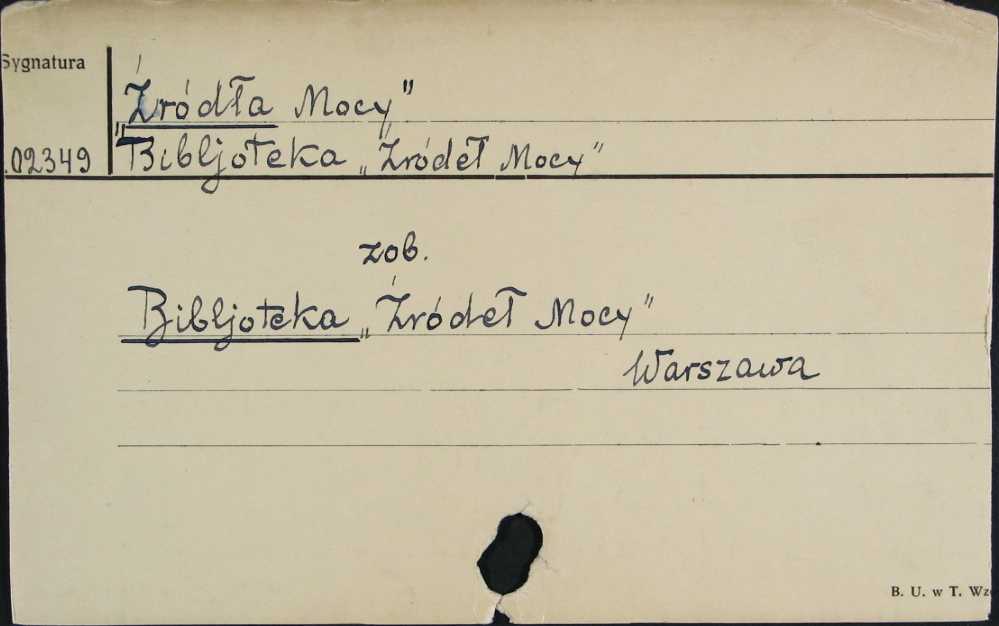 Sygnatura
„Źródła Mocy"
.02349 Bibljoteka „Źródeł Mocy"
zob.
Bibljoteka „Źródeł Mocy"
Warszawa
B. U. w T.